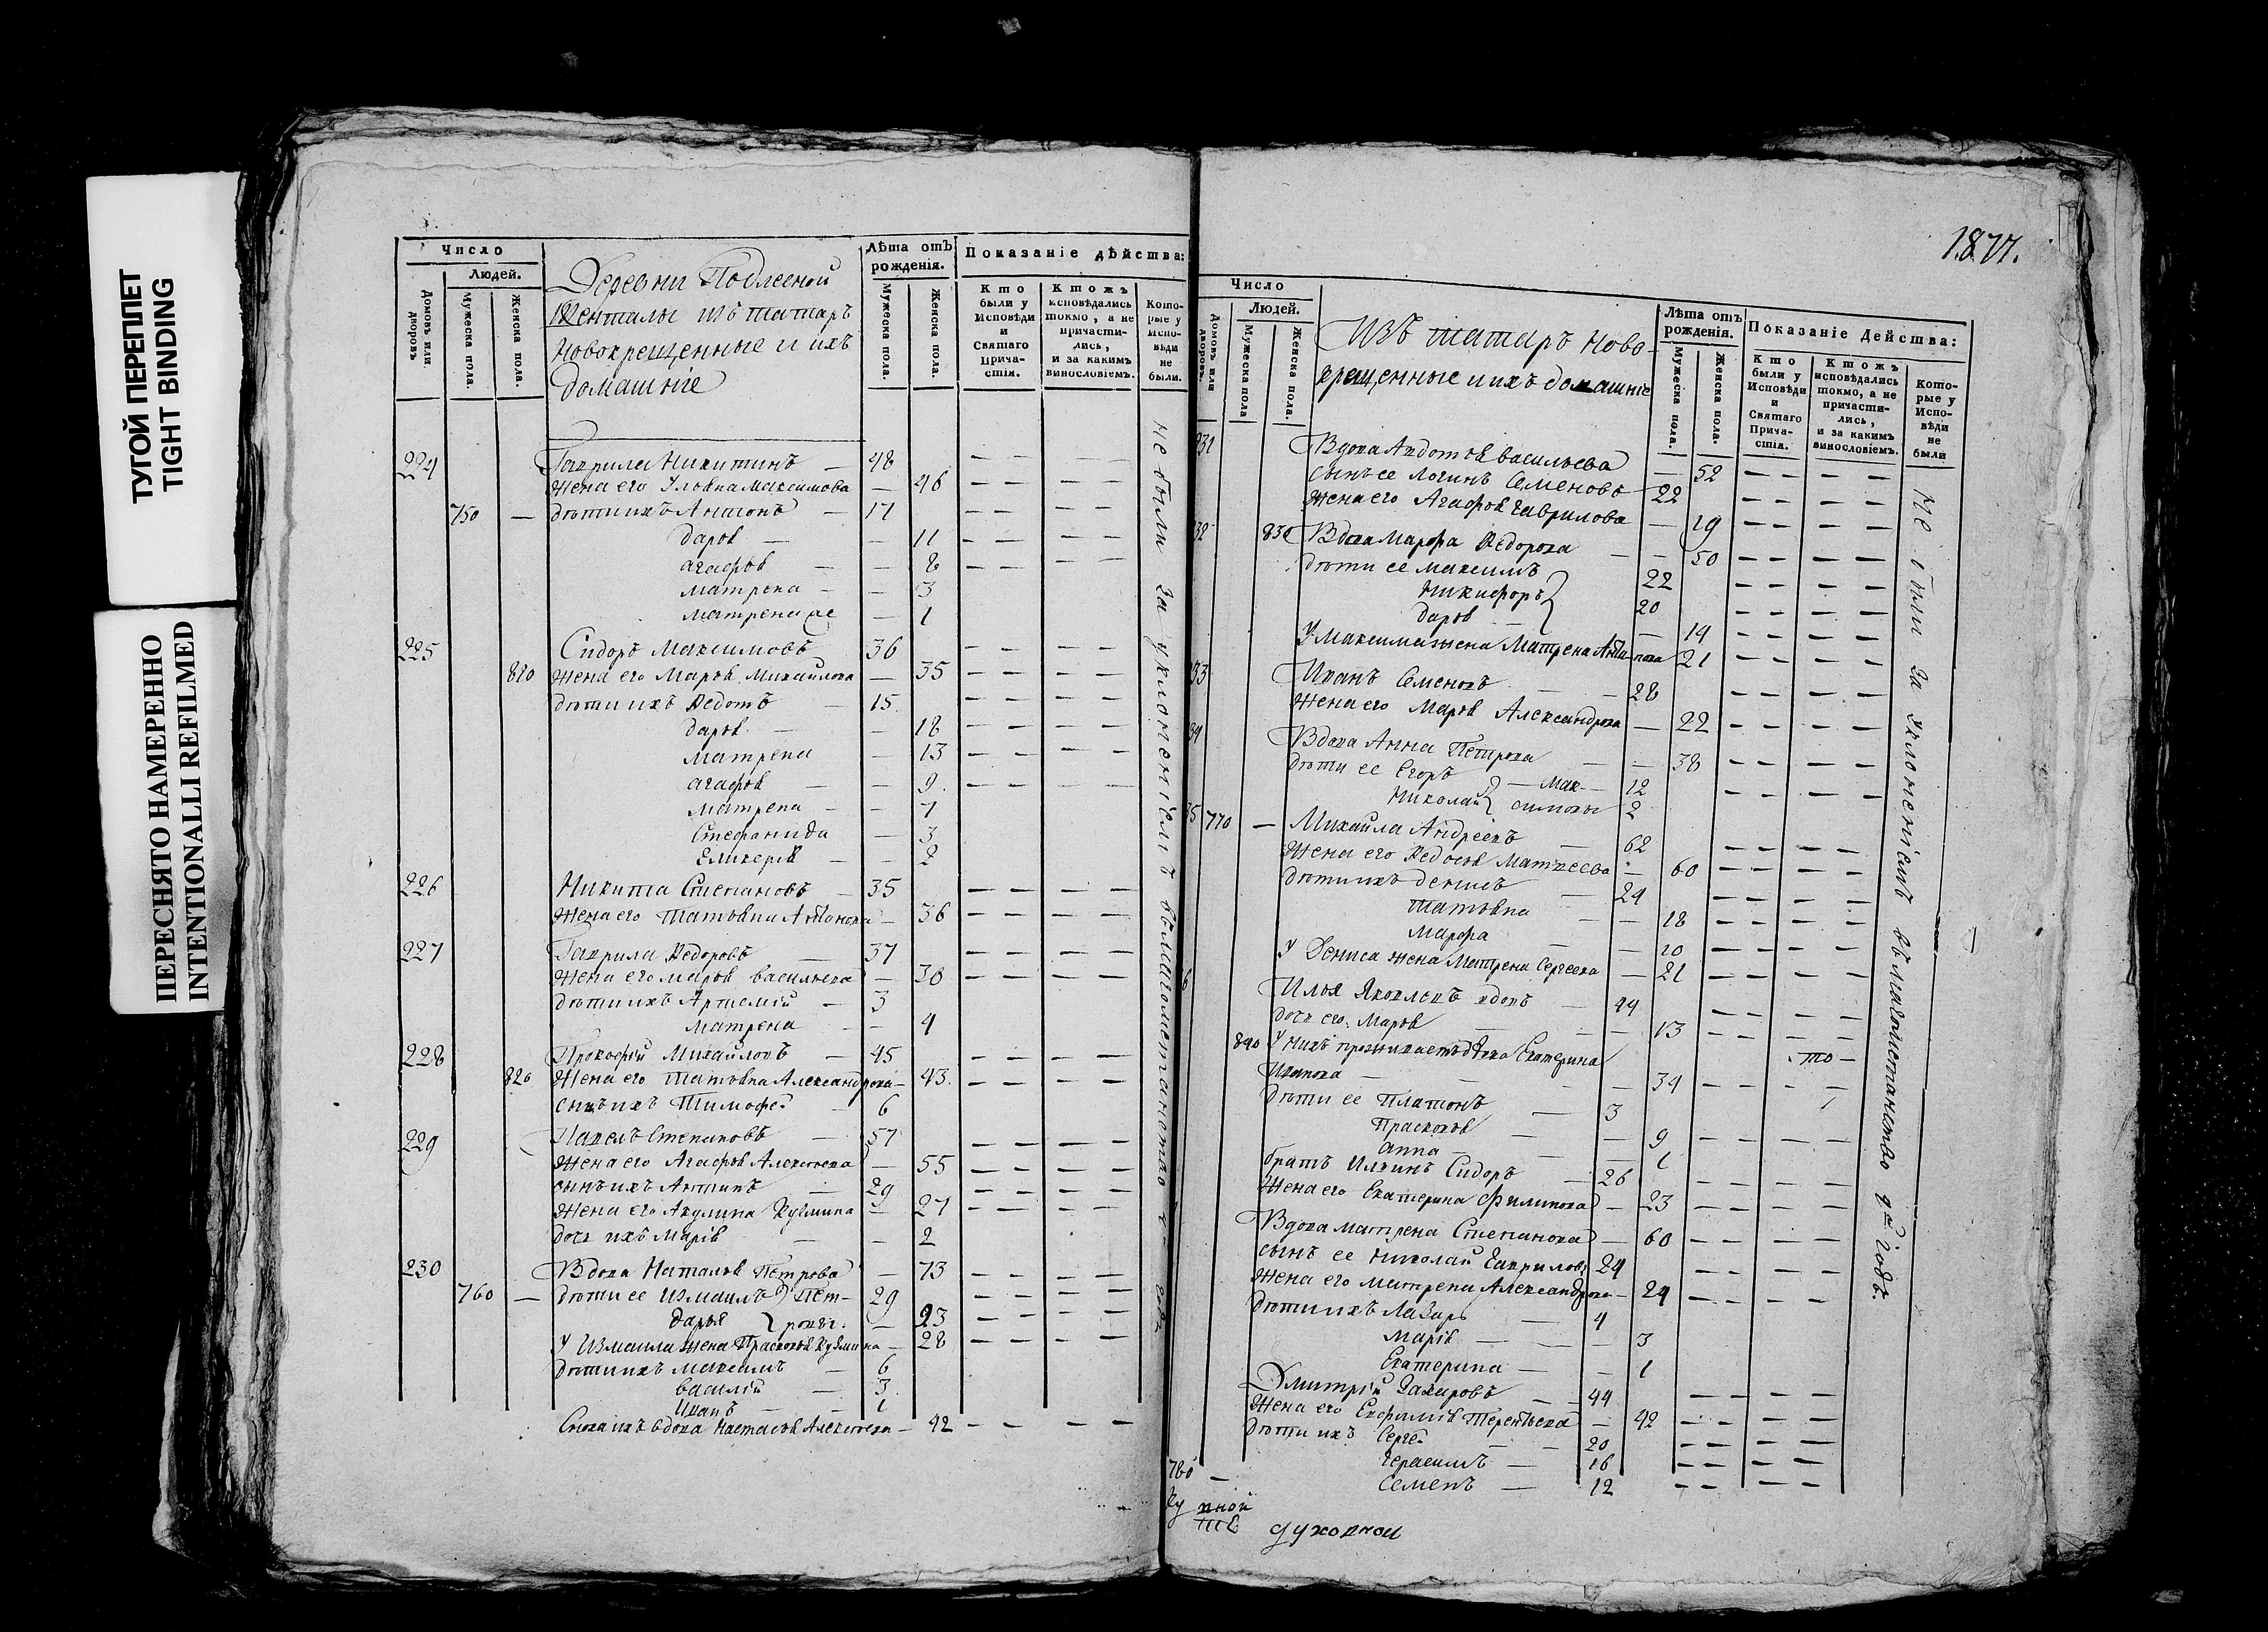 ТУГОЙ ПЕРЕПЛЕТ
TIGHT BINDING
ПЕРЕСНЯТО НАМЕРЕННО
INTENTIONALLI REFILMED
Число
Людей.
Домовъ или дворовъ
Мужеска пола.
Женска пола.
Деревни Подлесной
Шенталы изъ татаръ
Новокрещенные и ихъ
домашніе
Лѣта отъ рожденія.
Мужеска пола.
Женска пола.
Показаніе дѣйства:
Кто были у Исповѣди и Святаго Причастія.
Ктожъ исповѣдались токмо, а не причастились, и за какимъ винословіемъ.
Которые у Исповѣди не были.
224 Гаврила Никитинъ — 48
Жена его Максимова — 46
750 — дѣти ихъ Антонъ — 17
дарья — — 11
агафья — — 8
матрена — — 3
матрена — 1
225 Сидоръ Максимовъ 36
810 Жена его Марья Михайлова — 35
дѣти ихъ Ѳедотъ — 15
дарья — — 18
матрена — 13
агафья — — 9
матрена — — 7
Стефанида — 3
Гликерія — — 2
226 Никита Степановъ — 35
Жена его Татьяна Антонова — 36
227 Гаврила Ѳедоровъ — 37
Жена его марья васильева — 30
дѣти ихъ Артемій — 3
матрена — — 4
228 Прокофій Михайловъ — 45
820 Жена его Татьяна Александрова — 43
сынъ ихъ Тимофей — 6
229 Павелъ Степановъ — 57
Жена его Агафья Алексѣева — 55
сынъ ихъ Антипъ — 29
Жена его Акулина Кузмина — 27
дочь ихъ Марія — — 2
230 Вдова Наталья Петрова — 73
760 — дѣти ее Измаилъ Пет- 29
дарья ровы. — 23
У Измаила жена Прасковья Кузмина — 28
дѣти ихъ максимъ — 6
василій — 3
Иванъ — — 1
Сноха ихъ вдова Настасья Алексѣева — 42
не были за уклоненіемъ въ магометанство
1877.
Число
Людей.
Домовъ или дворовъ.
Мужеска пола
Женска пола.
Изъ татаръ ново-
крещенные и ихъ домашніе
Лѣта отъ рожденія.
Мужеска пола.
Женска пола.
Показаніе Дейсшва:
Кто были у Исповѣди и Святаго Причастія.
Ктожъ исповѣдались токмо, а не причастились, и за какимъ винословіемъ.
Которые у Исповѣди не были
231 Вдова Авдотья васильева — 52
сынъ ее Логинъ Семеновъ — 22
Жена его Агафья гаврилова — 19
232 830 Вдова Марфа Ѳедорова — — 50
дѣти ее максимъ 22
Никифоръ 20
дарья — — 14
У Максима жена Матрена Антипова 21
233 Иванъ Семеновъ — — 28
Жена его Марья Александрова — 22
234 Вдова Анна Петрова — — 38
дѣти ее Егоръ — Мак- — 12
Николай симовы 2
235 770 — Михайла Андреевъ — 62
Жена его Ѳедосья Матвеева — 60
дѣти ихъ денисъ — 24
татьяна — — 18
Марфа — — 10
У Дениса жена Матрена Сергеева — 21
6 Илья Яковлевъ вдовъ — 44
дочь его Марья — — 13
840 У нихъ проживаетъ вдова Екатерина
Иванова — — — — 34
дѣти ее Платонъ — 3
Прасковья — — 9
анна — — 1
братъ Ильинъ Сидоръ — 26
Жена его Екатерина Филипова — 23
Вдова матрена Степанова — 60
сынъ ее Николай Гавриловъ 24
Жена его матрена Александрова — 24
дѣти ихъ Лазарь — 4
Марія — — 3
Екатерина — — 1
Дмитрій Захаровъ — 44
Жена его Евфимія Терентьева — 42
дѣти ихъ Сергей — 20
780 — герасимъ — 16
семенъ — 12
духовной
не были за уклоненіемъ въ магометанство